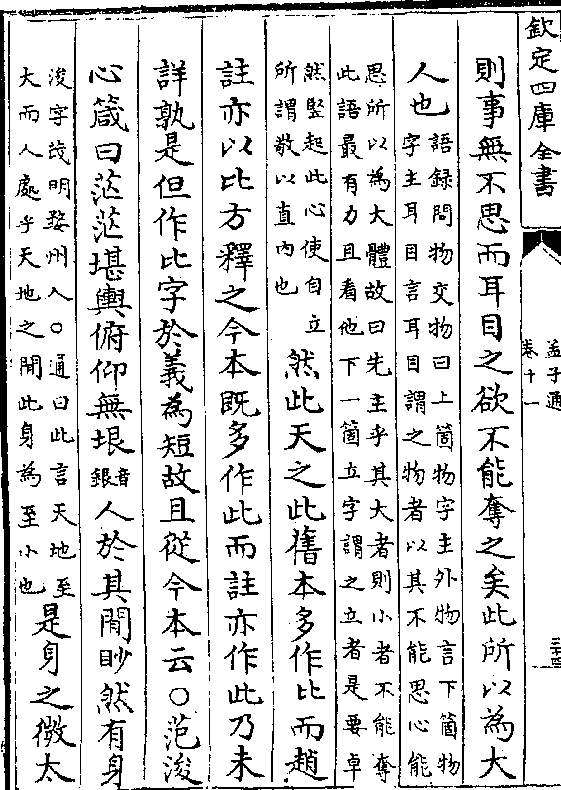 欽定四庫全書
孟子通
卷十一
則事無不思而耳目之欲不能奪之矣此所以為大
人也
語錄問物交物曰上箇物字主外物言下箇物
字主耳目言耳目謂之物者以其不能思心能
思所以為大體故曰先主乎其大者則小者不能奪
此語最有力且看他下一箇立字謂之立者是要卓
然豎起此心使自立
所謂敬以直內也
然此天之此舊本多作比而趙
註亦以比方釋之今本既多作此而註亦作此乃未
詳孰是但作比字於義為短故且從今本云○范浚
心箴曰茫茫堪輿俯仰無垠音銀人於其間眇然有身
浚字茂明婺州人○通曰此言天地至
大而人處乎天地之間此身為至小也
是身之微太